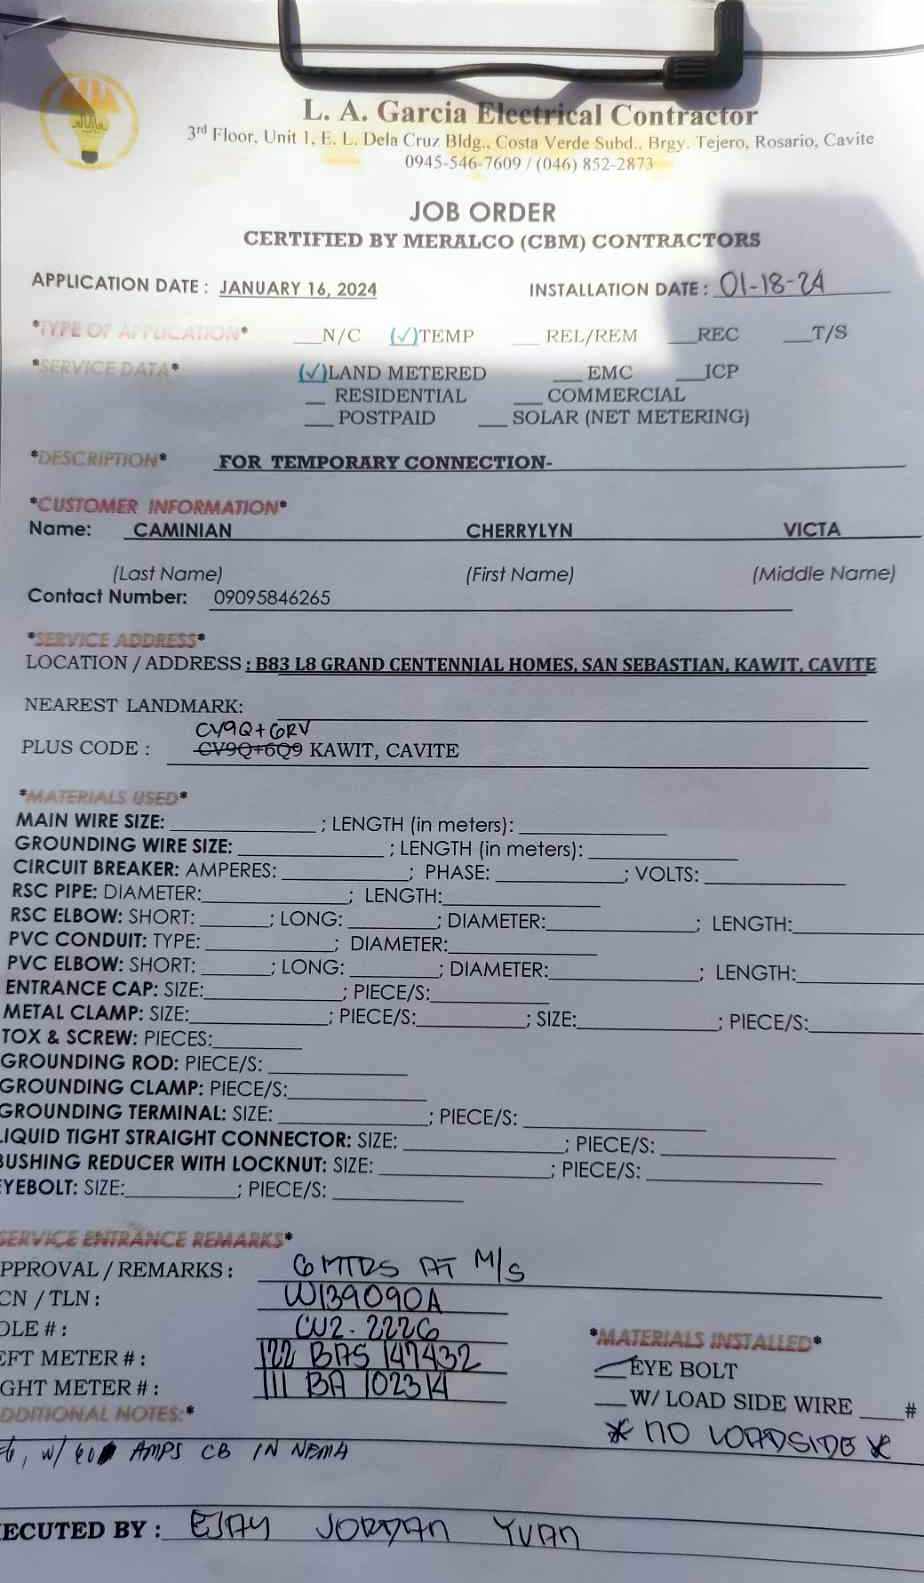 L. A. Garcia Electrical Contractor
3rd Floor, Unit 1, E. L. Dela Cruz Bldg., Costa Verde Subd., Brgy. Tejero, Rosario, Cavite
0945-546-7609 / (046) 852-2873
JOB ORDER
CERTIFIED BY MERALCO (CBM) CONTRACTORS
APPLICATION DATE : JANUARY 16, 2024 INSTALLATION DATE : 01-18-24
*TYPE OF APPLICATION* ___N/C (✓)TEMP ___ REL/REM ___REC ___T/S
*SERVICE DATA* (✓)LAND METERED ___ EMC ___ICP
__ RESIDENTIAL ___ COMMERCIAL
___ POSTPAID ___ SOLAR (NET METERING)
*DESCRIPTION* FOR TEMPORARY CONNECTION-
*CUSTOMER INFORMATION*
Name: CAMINIAN CHERRYLYN VICTA
(Last Name) (First Name) (Middle Name)
Contact Number: 09095846265
*SERVICE ADDRESS*
LOCATION / ADDRESS : B83 L8 GRAND CENTENNIAL HOMES, SAN SEBASTIAN, KAWIT, CAVITE
NEAREST LANDMARK:
CV9Q+GRV
PLUS CODE : CV9Q+6Q9 KAWIT, CAVITE
*MATERIALS USED*
MAIN WIRE SIZE: ____________ ; LENGTH (in meters): ____________
GROUNDING WIRE SIZE: ____________ ; LENGTH (in meters): ____________
CIRCUIT BREAKER: AMPERES: ____________ ; PHASE: ____________ ; VOLTS: ____________
RSC PIPE: DIAMETER: ____________ ; LENGTH: ____________
RSC ELBOW: SHORT: ______ ; LONG: ________ ; DIAMETER: ____________ ; LENGTH: ____________
PVC CONDUIT: TYPE: ____________ ; DIAMETER: ____________
PVC ELBOW: SHORT: ______ ; LONG: ________ ; DIAMETER: ____________ ; LENGTH: ____________
ENTRANCE CAP: SIZE: ____________ ; PIECE/S: ____________
METAL CLAMP: SIZE: ____________ ; PIECE/S: ________ ; SIZE: ____________ ; PIECE/S: ____________
TOX & SCREW: PIECES: ________
GROUNDING ROD: PIECE/S: ____________
GROUNDING CLAMP: PIECE/S: ____________
GROUNDING TERMINAL: SIZE: ____________ ; PIECE/S: ____________
LIQUID TIGHT STRAIGHT CONNECTOR: SIZE: ____________ ; PIECE/S: ____________
BUSHING REDUCER WITH LOCKNUT: SIZE: ____________ ; PIECE/S: ____________
EYEBOLT: SIZE: ________ ; PIECE/S: ____________
SERVICE ENTRANCE REMARKS*
PPROVAL / REMARKS : 6 MTRS AT M/S
CN / TLN : W139090A
OLE # : CU2-2226
EFT METER # : 122 BAS 147432
GHT METER # : 111 BA 102314
DDITIONAL NOTES:*
*MATERIALS INSTALLED*
EYE BOLT
___W/ LOAD SIDE WIRE ____#
* NO LOADSIDE *
, W/ 60 AMPS CB IN NEMA
ECUTED BY : EJAY JORDAN YUAN